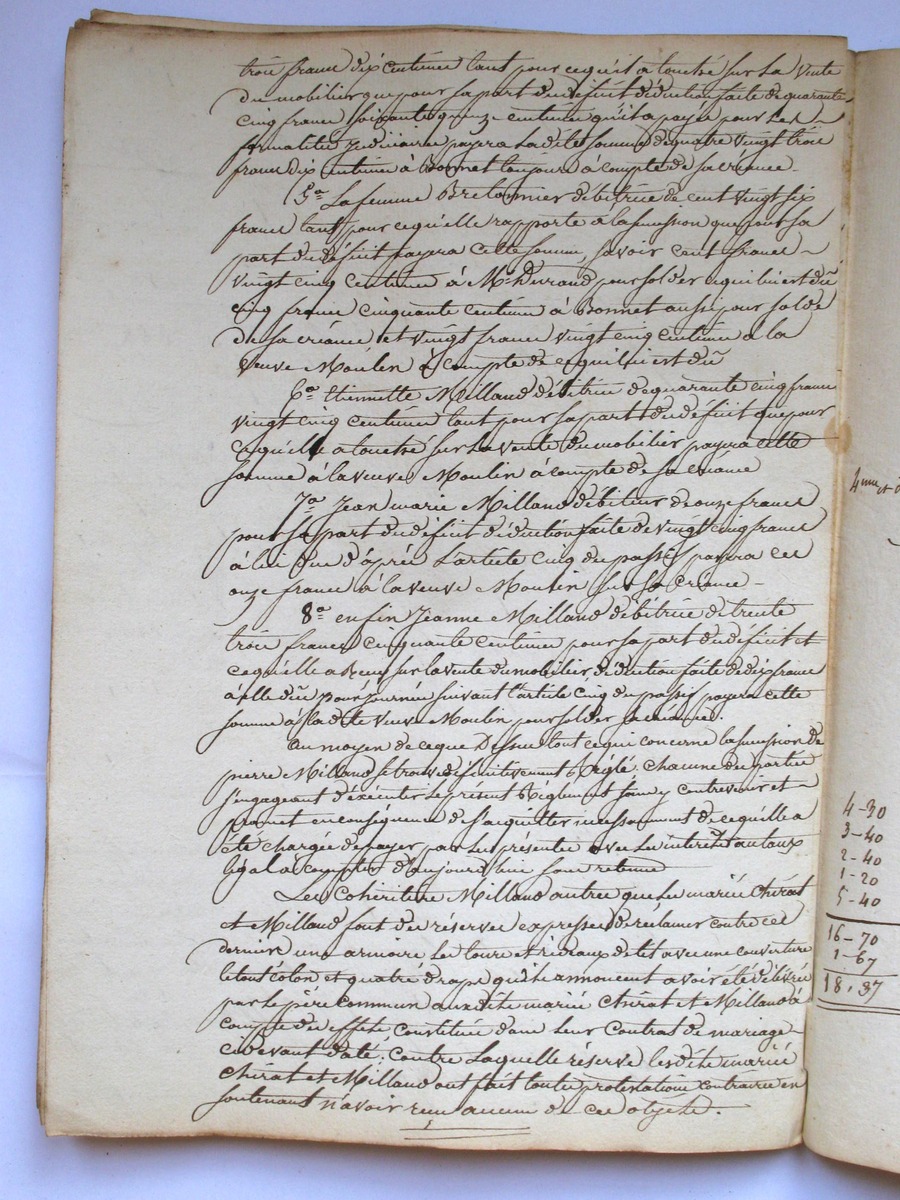 trois francs dix centimes tant pour ce qu'il a touché sur la vente
du mobilier que pour sa part du déficit déduction faite de quarante
cinq francs soixante quinze centimes qu'il a payés pour les
formalités judiciaires payera la dite somme de quatre vingt trois
francs dix centimes à Bonnet toujours à compte de sa créance.
5° La femme Bretonnier débitrice de cent vingt six
francs tant pour ce qu'elle rapporte à la succession que pour sa
part du déficit payera cette somme, savoir cent francs
vingt cinq centimes à Mr Durand pour solder ce qui lui est dû
cinq francs cinquante centimes à Bonnet aussi pour solde
de sa créance et vingt francs vingt cinq centimes à la
veuve Moulin à compte de ce qui lui est dû
6° Etiennette Milland débitrice de quarante cinq francs
vingt cinq centimes tant pour sa part du déficit que pour
ce qu'elle a touché sur la vente du mobilier payera cette
somme à la veuve Moulin à compte de sa créance
7° Jean marie Milland débiteur de onze francs
pour sa part du déficit déduction faite de vingt cinq francs
à lui due d'après l'article cinq du passif payera ces
onze francs à la veuve Moulin sur sa créance
8° enfin Jeanne Milland débitrice de trente
trois francs cinquante centimes pour sa part du déficit et
ce qu'elle a reçu sur la vente du mobilier déduction faite de dix francs
à elle dûs pour journées suivant l'article cinq du passif payera cette
somme à la dite veuve Moulin pour solder sa créance.
Au moyen de ce que Dessus tout ce qui concerne la succession de
pierre Milland se trouve définitivement Réglé. chacune des parties
s'engageant d'exécuter le présent Règlement sans y contrevenir et
promet en conséquence de s'acquitter incessamment de ce qu'elle a
été chargée de payer par les présentes avec les intérêts au taux
légal à compter d'aujourd'hui sans retenue
Les Cohéritiers Milland autres que les mariés Chirat
et Milland font des réserves expresses de réclamer contre ces
derniers une armoire les tours et rideaux de lit avec une couverture
le tout coton et quatre draps qu'ils annoncent avoir été délivrés
par le père commun aux dits mariés Chirat et Milland à
compte des effets constitués dans leur Contrat de mariage
ci devant daté; contre laquelle réserve les dits mariés
Chirat et Milland ont fait toutes protestations contraires en
soutenant n'avoir reçu aucun de ces objets.
4-30
3-40
2-40
1-20
5-40
16-70
1-67
18.37